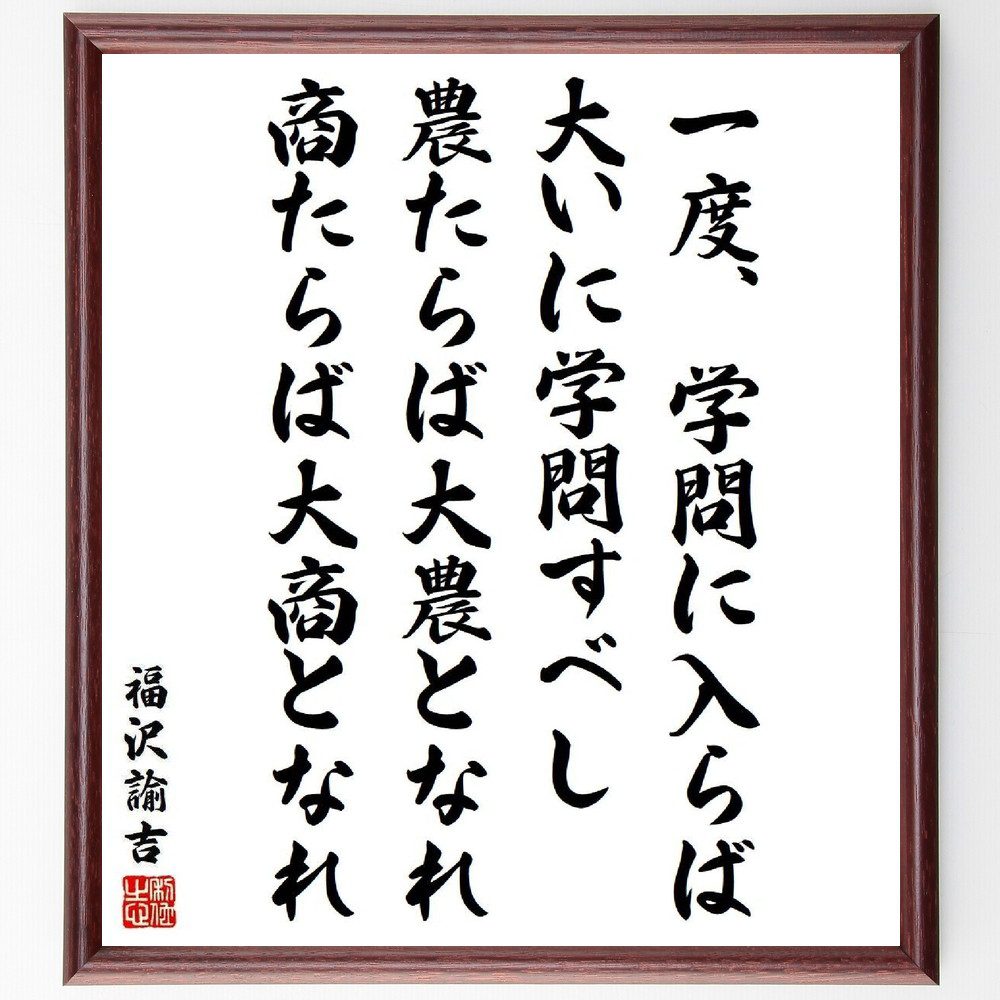 一度、学問に入らば
大いに学問すべし
農たらば大農となれ
商たらば大商となれ
福沢諭吉